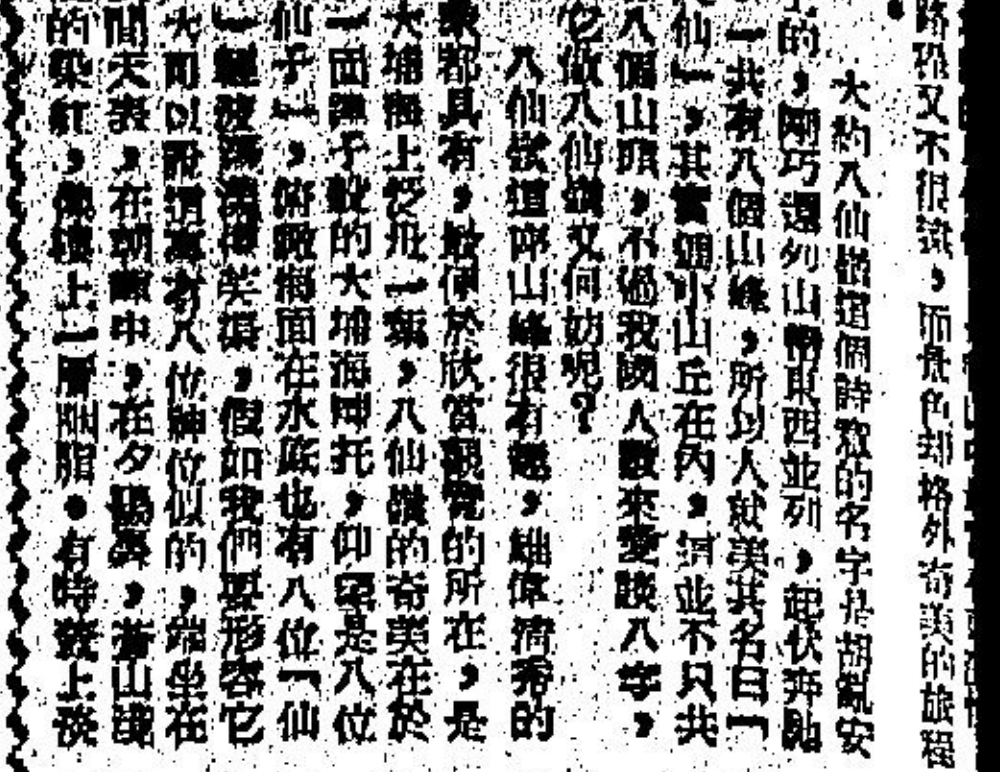 路程又不很遠，而景色却格外奇美的旅程
。
大約八仙嶺這個詩意的名字是胡亂安
的，剛巧這列山嶺東西並列，起伏奔馳
一共有八個山峰，所以人就美其名曰「
仙」，其實連小山丘在內，須並不只共
八個山頭，不過我國人歡來愛談八字，
它做八仙嶺又何妨呢？
八仙嶺這座山峰很有趣，雄偉清秀的
都具有，最便於欣賞觀覽的所在，是
大埔海上泛舟一葉，八仙嶺的奇美在於
一面 的大埔海 托，仰望是八位
仙子」，俯瞰海面在水底也有八位「仙
」輕波蕩漾 笑渦，假如我們要形容它
大可以說這裏有八位神位似的，端坐在
間天表，在朝 中，在夕陽裏，蒼山
的染紅，像塗上一層胭脂。有時籠上淡